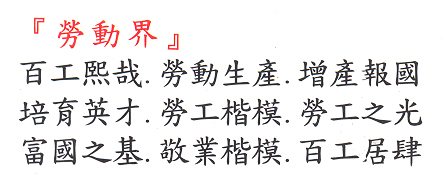 『勞動界』
百工熙哉.勞動生產.增產報國
培育英才.勞工楷模.勞工之光
富國之基.敬業楷模.百工居肆